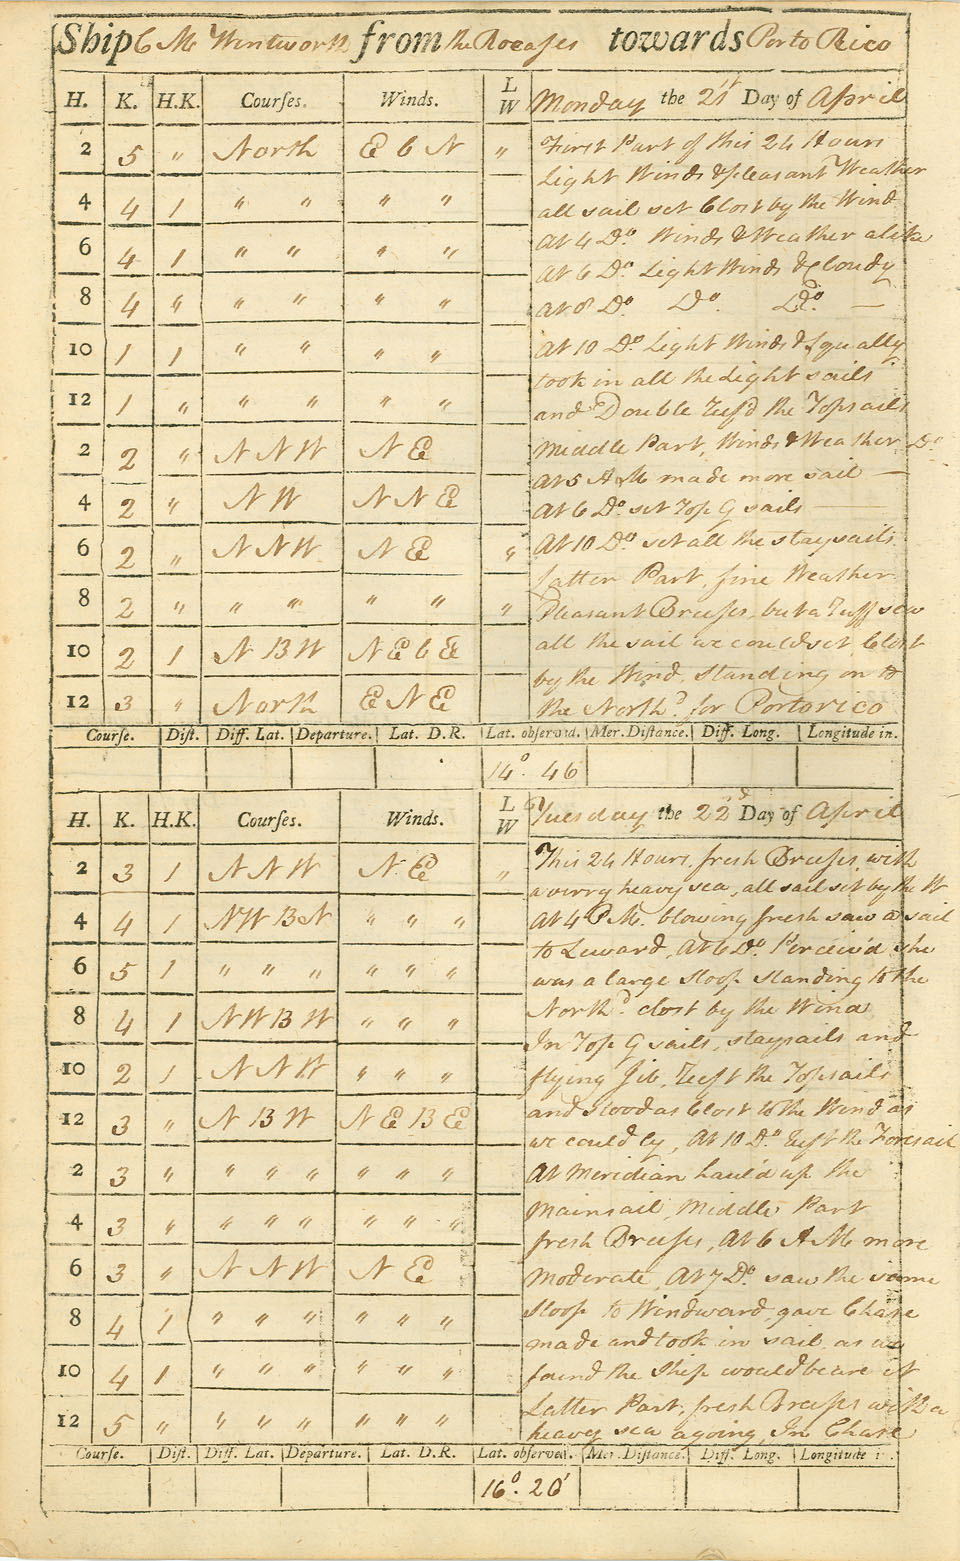 Ship C M Wentworth from the Rocases towards Porto Rico
H. K. H.K. Courses. Winds. L W Monday the 21st Day of April
2 5 " North E b N " First Part of this 24 Hours
Light Winds & pleasant Weather
4 4 1 " " " " all sail set Clost by the Wind
At 4 Do. Winds & Weather alike
6 4 1 " " " " At 6 Do. Light Winds & Cloudy
8 4 " " " " " At 8 Do. Do. Do. —
10 1 1 " " " " At 10 Do Light Winds & Squally
took in all the Light sails
12 1 " " " " " and Double Reef'd the Topsails
2 2 " N N W N E Middle Part, Winds & Weather Do
At 5 A M made more sail —
4 2 " N W N N E At 6 Do set Top G sails —
6 2 " N N W N E " At 10 Do set all the staysails
Latter Part, fine Weather
8 2 " " " " " " Pleasant Breeses, but a Ruff sea
10 2 1 N B W N E b E all the sail we could set Clost
by the Wind, standing on to
12 3 " North E N E the Northd. for Portorico
Course. Dist. Diff. Lat. Departure. Lat. D.R. Lat. observed. Mer. Distance. Diff. Long. Longitude in.
14°. 46
H. K. H.K. Courses. Winds. L W Tuesday the 22d Day of April
2 3 1 N N W N E " This 24 Hours, fresh Breeses with
a verry heavy sea, all sail set by the W
4 4 1 NW B N " " " At 4 P M. blowing fresh saw a sail
to Leward, At 6 Do Perceiv'd she
6 5 1 " " " " " " was a large sloop standing to the
8 4 1 NW B W " " " Northd. clost by the Wind
In Top G sails, staysails and
10 2 1 N N W " " " flying Jib, Reeft the Topsails
12 3 " N B W N E B E and stood as Clost to the Wind as
we could ly, At 10 Do Reft the Foresail
2 3 " " " " " " " At Meridian haul'd up the
4 3 " " " " " " " Mainsail, Middle Part
fresh Breeses, At 6 A M more
6 3 " N N W N E Moderate, At 7 Do. saw the same
8 4 1 " " " " " " Sloop to Windward, gave Chase
made and took in sail as we
10 4 1 " " " " " " found the Ship would beare it
Latter Part, fresh Breeses with a
12 5 " " " " " " " heavy sea agoing, In Chase
Course. Dist. Diff. Lat. Departure. Lat. D.R. Lat. observed. Mer. Distance. Diff. Long. Longitude i.
16°. 26'